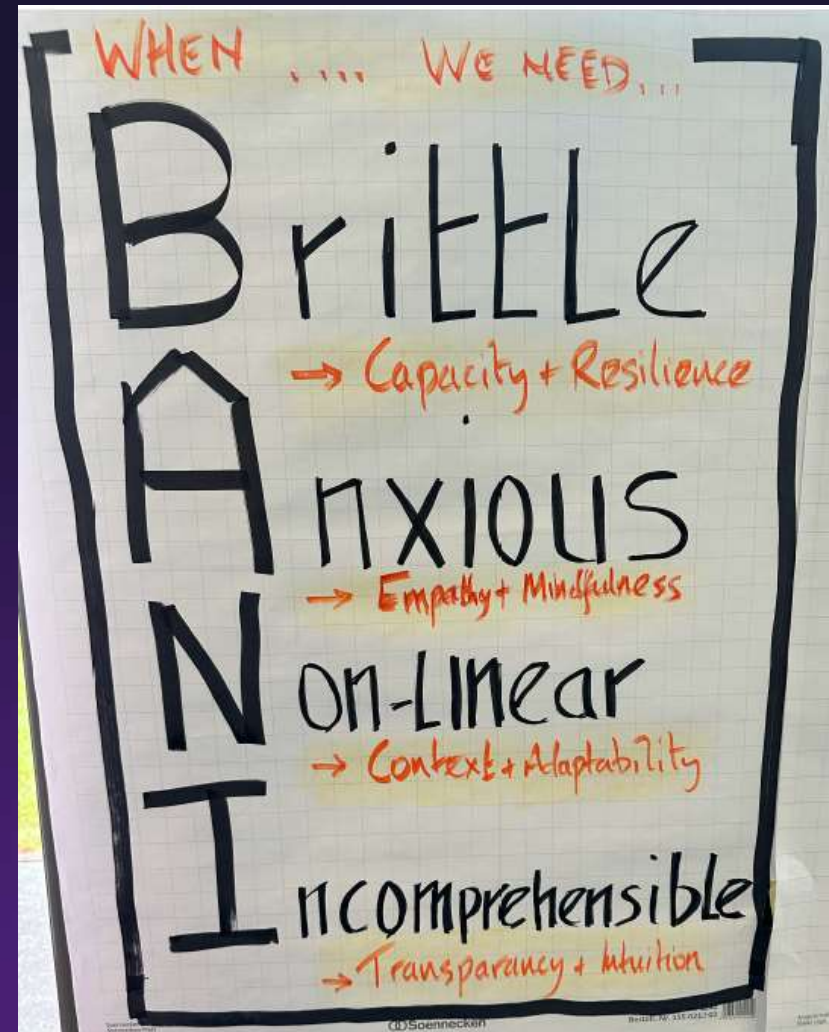 WHEN .... WE NEED...
Brittle
→ Capacity + Resilience
Anxious
→ Empathy + Mindfulness
Non-Linear
→ Context + Adaptability
Incomprehensible
→ Transparancy + Intuition
Soennecken